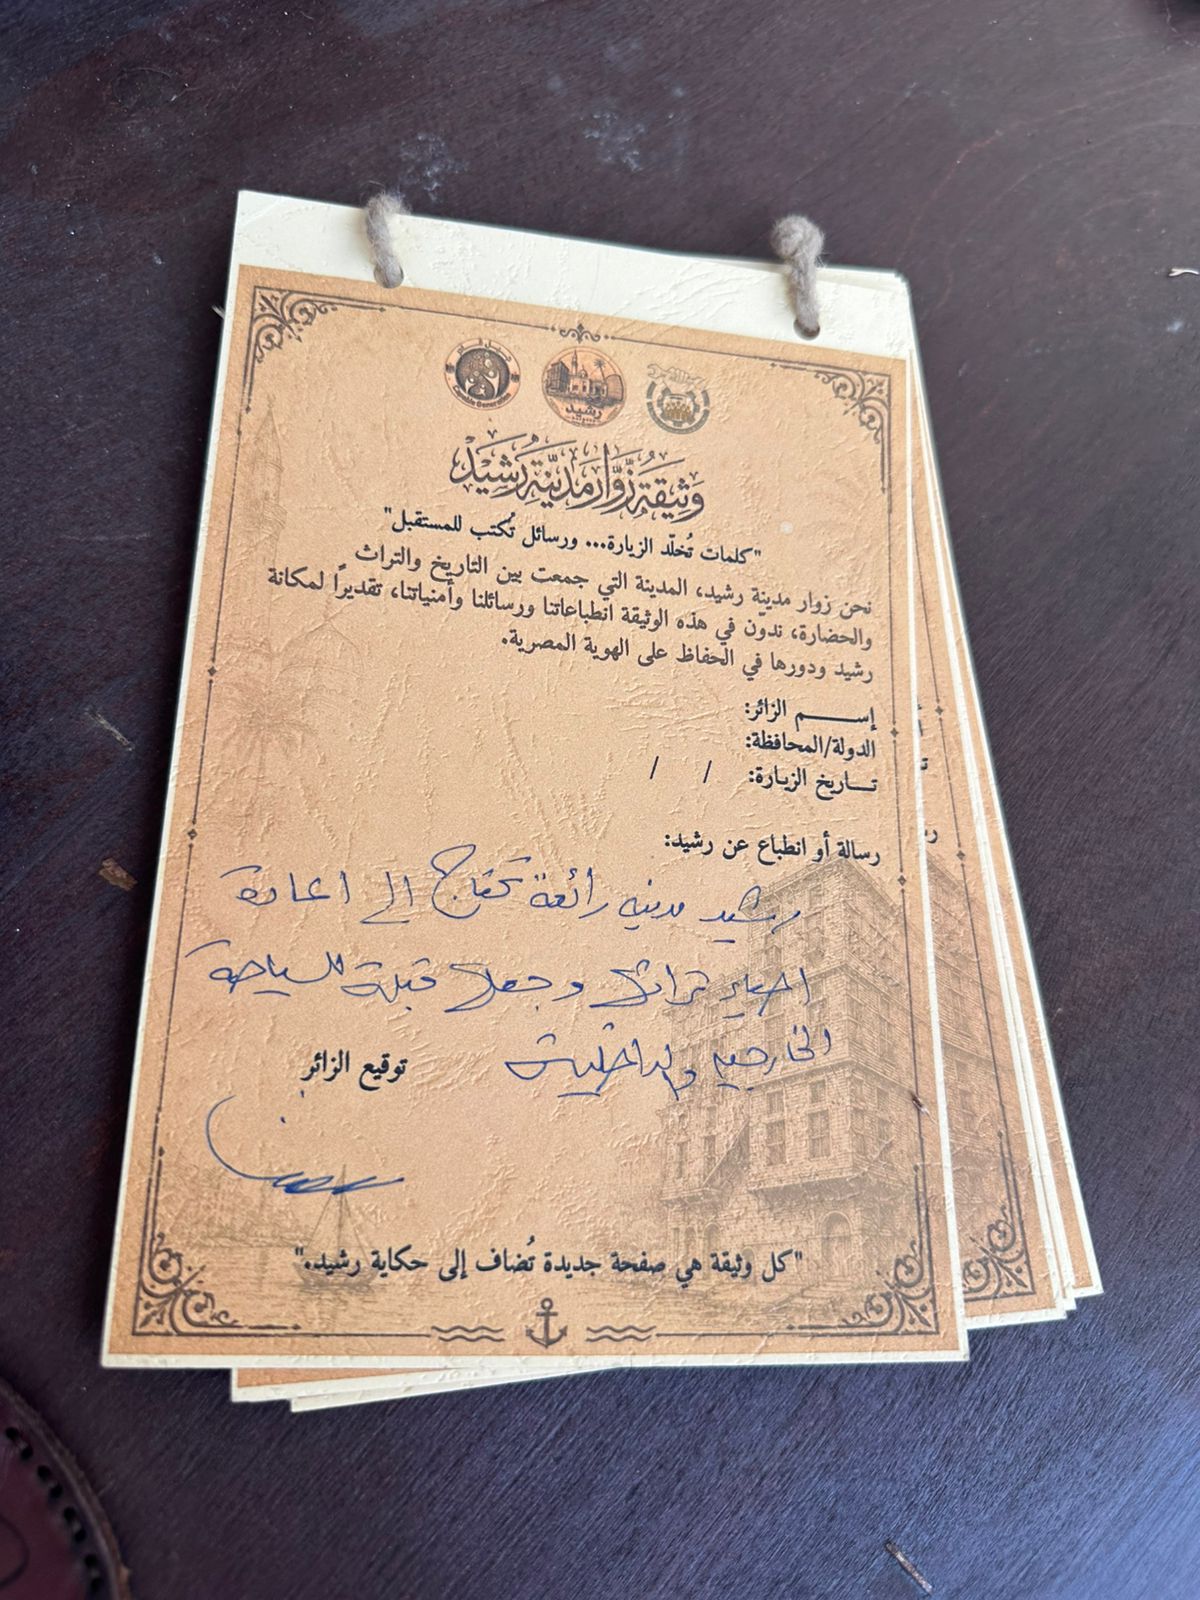 جيل قادر
Capable Generation
رشيد
وَثِيقَةُ زُوَّار مَدِينَة رَشِيدْ
"كلمات تُخلّد الزيارة... ورسائل تُكتب للمستقبل"
نحن زوار مدينة رشيد، المدينة التي جمعت بين التاريخ والتراث
والحضارة، ندوّن في هذه الوثيقة انطباعاتنا ورسائلنا وأمنياتنا، تقديرًا لمكانة
رشيد ودورها في الحفاظ على الهوية المصرية.
إســـم الزائر:
الدولة/المحافظة:
تـــاريخ الزيارة: / /
رسالة أو انطباع عن رشيد:
رشيد مدينه رائعة تحتاج الى اعادة
احياء تراثها وجعلها قبلة للسياحة
الخارجيه والداخلية
توقيع الزائر
"كل وثيقة هي صفحة جديدة تُضاف إلى حكاية رشيد."